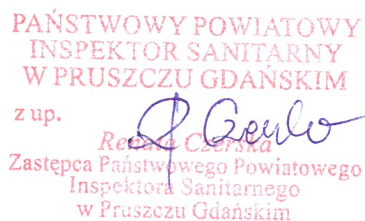 PAŃSTWOWY POWIATOWY
INSPEKTOR SANITARNY
W PRUSZCZU GDAŃSKIM
z up.
Zastępca Państwowego Powiatowego
Inspektora Sanitarnego
w Pruszczu Gdańskim